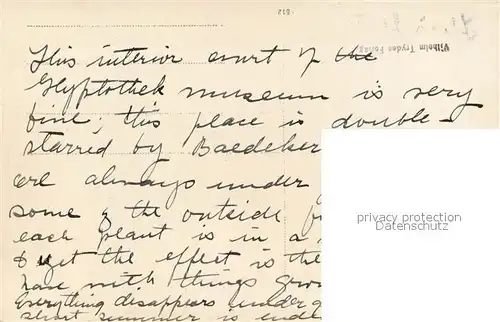 812
Wilhelm Tryde
This interior court of the
Glyptothek museum is very
fine, this place is double-
starred by Baedeker
are always under
some of the outside
each plant is in a
& yet the effect is the
have with things grow
Everything disappears under g
short summer is ende
privacy protection
oldthing.de